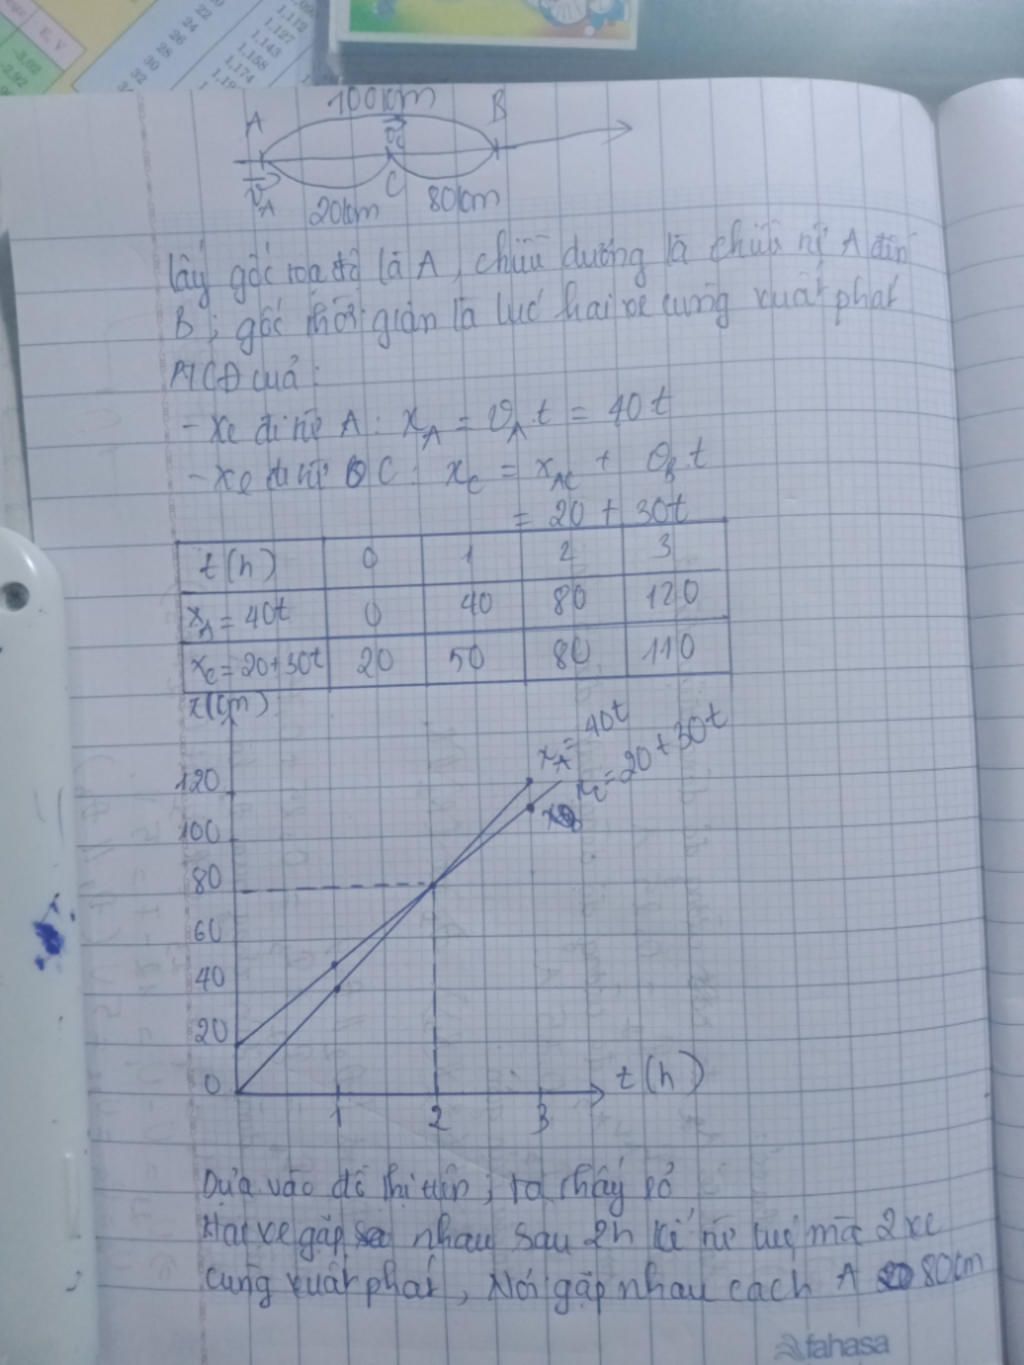 E, V
-3,02
-2,92
32 30 28 26 24 22 20
1,112
1,127
1,143
1,158
1,174
100km
A B
C
v_A 20km 80km
lấy gốc tọa độ là A, chiều dương là chiều từ A đến
B; gốc thời gian là lúc hai xe cùng xuất phát
PTCĐ của:
- Xe đi từ A: x_A = v_A.t = 40t
- Xe đi từ C: x_C = x_AC + v_B.t
= 20 + 30t
t(h) 0 1 2 3
x_A = 40t 0 40 80 120
x_C = 20+30t 20 50 80 110
x(km)
x_A = 40t
x_C = 20+30t
120
100
80
60
40
20
0
t(h)
1 2 3
Dựa vào đồ thị trên, ta thấy
Hai xe gặp nhau sau 2h kể từ lúc mà 2 xe
cùng xuất phát, Nơi gặp nhau cách A 80km
fahasa